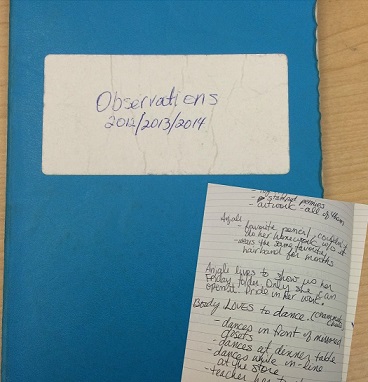 Observations
2012/2013/2014
- standard pennies
- artwork - all of them
Anjali
- favorite pencil, couldn't
do her homework w/o it
- wears the same favorite
hairband for months
Anjali loves to show us her
Friday folder. Only she can
open it. Pride in her work.
Brody LOVES to dance.
- dances in front of mirrored
closets
- dances at dinner table
- dances while in-line
at the store
- teacher has to